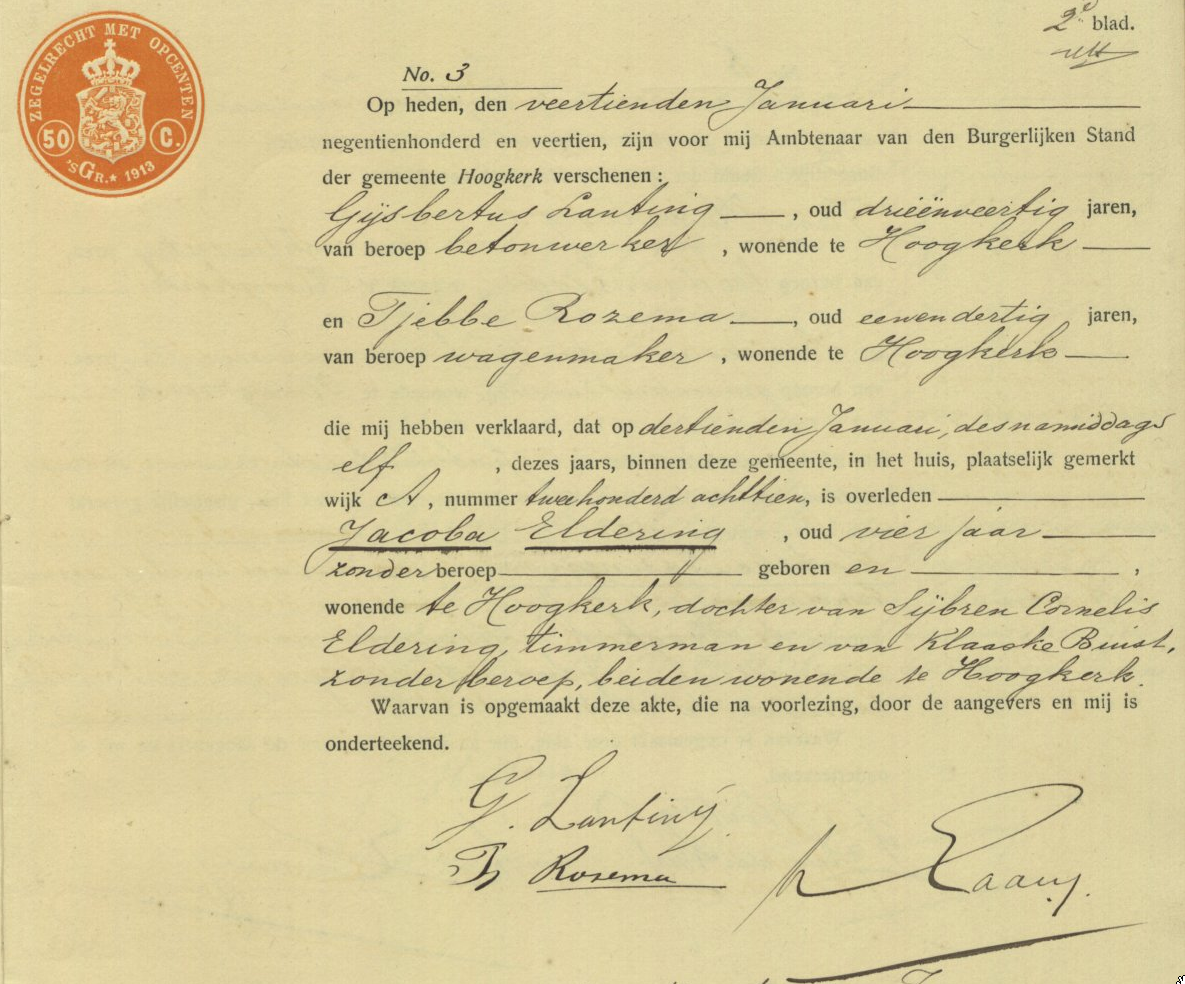 ZEGELRECHT MET OPCENTEN
50 C.
'SGR.* 1913
2e blad.
No. 3
Op heden, den veertienden Januari
negentienhonderd en veertien, zijn voor mij Ambtenaar van den Burgerlijken Stand
der gemeente Hoogkerk verschenen:
Gijsbertus Lanting, oud drieënveertig jaren,
van beroep betonwerker, wonende te Hoogkerk
en Tjebbe Rozema, oud eenendertig jaren,
van beroep wagenmaker, wonende te Hoogkerk
die mij hebben verklaard, dat op dertienden Januari, des namiddags
elf, dezes jaars, binnen deze gemeente, in het huis, plaatselijk gemerkt
wijk A, nummer tweehonderd achttien, is overleden
Jacoba Eldering, oud vier jaar
zonder beroep geboren en,
wonende te Hoogkerk, dochter van Sijbren Cornelis
Eldering, timmerman en van Klaaske Buist,
zonder beroep, beiden wonende te Hoogkerk.
Waarvan is opgemaakt deze akte, die na voorlezing, door de aangevers en mij is
onderteekend.
G. Lanting
Tj Rosema